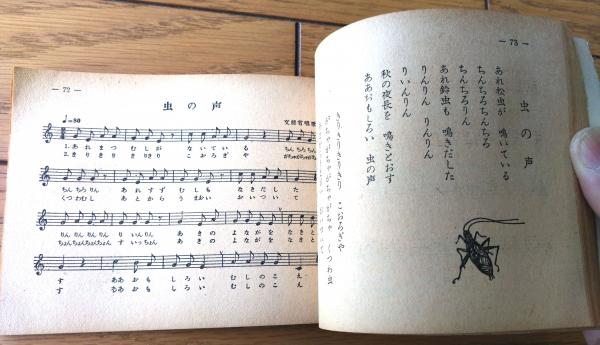 — 72 —
虫の声
♩=80
文部省唱歌
1.あれまつ むしが ないている ちんちろちん
2.きりきり きりきり こおろぎや がちゃがちゃがちゃ
ちんちろりん あれすず むしも なきだした
くつわむし あとから うまおい おいついて
りんりんりん りいんりん あきの よながを なきと
ちょんちょんちょん すいっちょん あきの よながを なきと
す ああおも しろい むしのこえ
す ああおも しろい むしのこえ
— 73 —
虫の声
あれ松虫が 鳴いている
ちんちろちんちろ
ちんちろりん
あれ鈴虫も 鳴きだした
りんりん りんりん
りいんりん
秋の夜長を 鳴きとおす
ああおもしろい 虫の声
きりきりきりきり こおろぎや
がちゃがちゃがちゃがちゃ くつわ虫